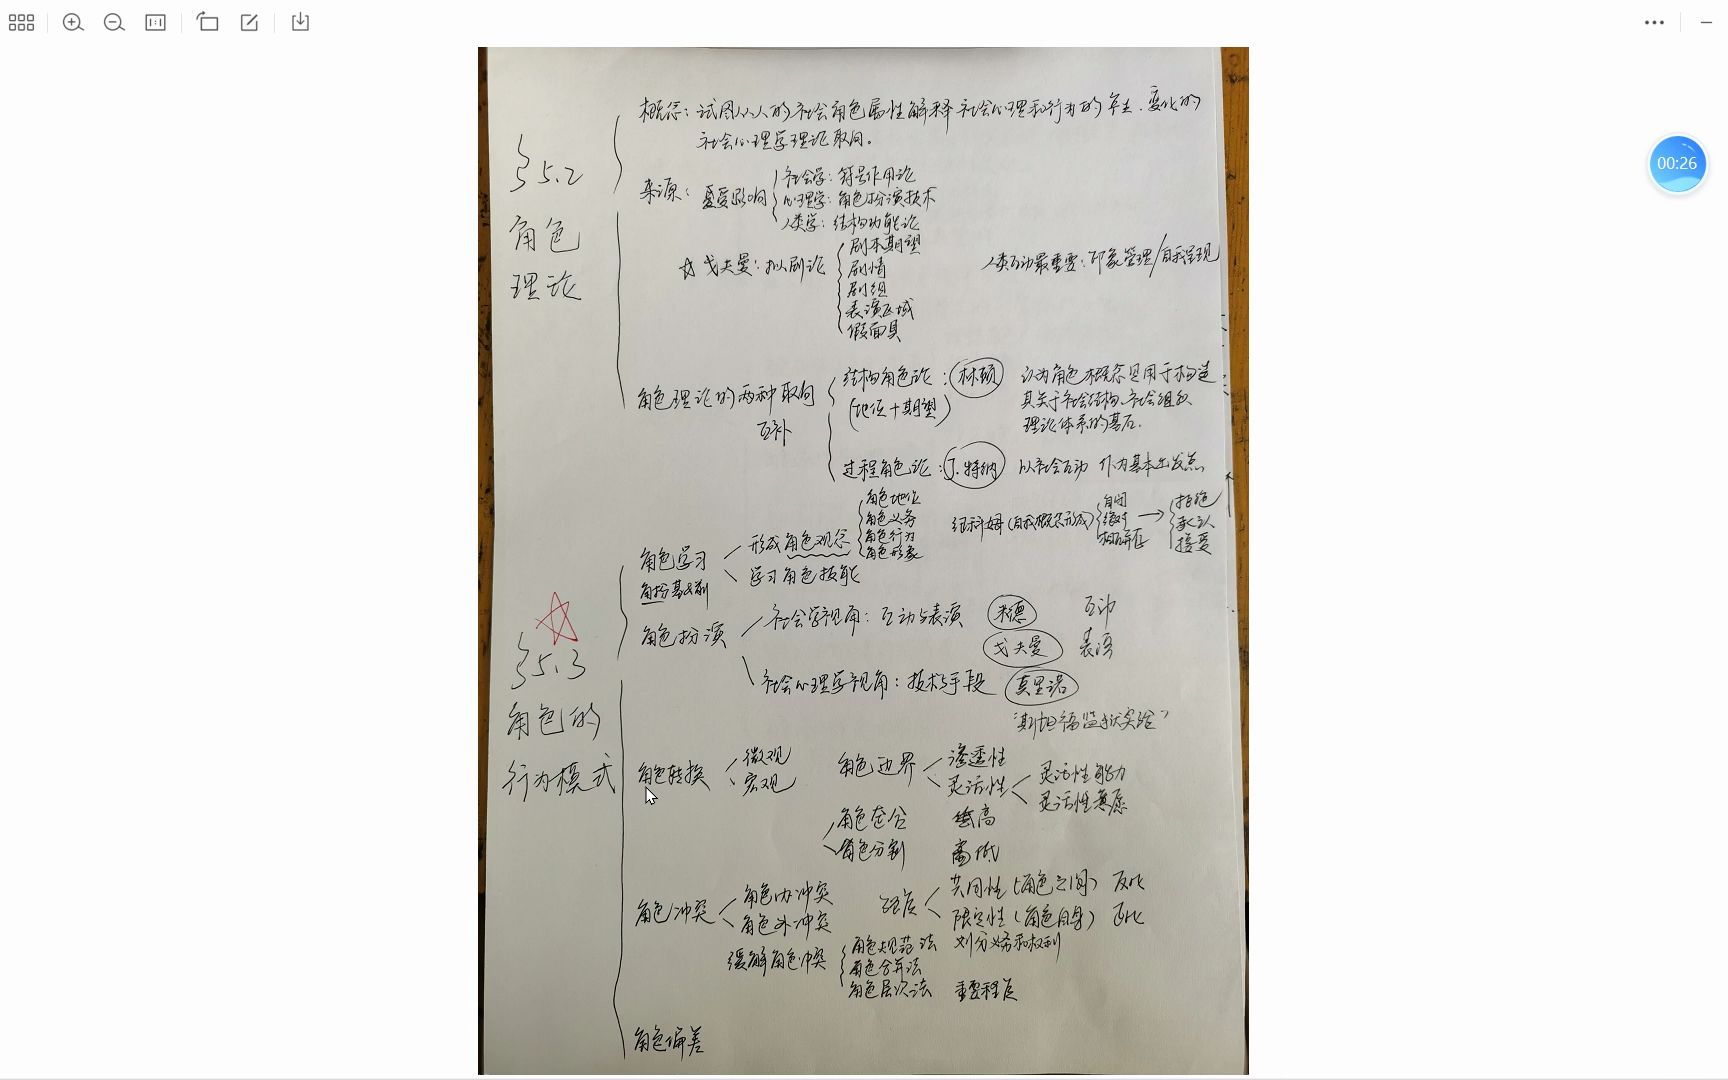 00:26
概念：试图从人的社会角色属性解释社会心理和行为的产生、变化的
社会心理学理论取向。
§5.2
角色
理论
来源：
影响
社会学：符号作用论
心理学：角色扮演技术
人类学：结构功能论
☆戈夫曼：拟剧论
剧本期望
剧情
剧组
表演区域
假面具
人类互动最重要：印象管理/自我呈现
角色理论的两种取向
互补
结构角色论：林顿
(地位+期望)
认为角色概念是用于构造
其关于社会结构、社会组织
理论体系的基石.
过程角色论：J.特纳
以社会互动 作为基本出发点
§5.3
角色的
行为模式
角色学习
形成角色观念
角色地位
角色义务
角色行为
角色形象
(自我概念形成)
拒绝
承认
接受
学习角色技能
角色扮演
社会学视角：互动与表演
米德 互动
戈夫曼 表演
社会心理学视角：技术与手段
“斯坦福监狱实验”
角色转换
微观
宏观
角色边界
渗透性
灵活性
灵活性能力
灵活性意愿
角色整合
高
角色分割
低
角色冲突
角色内冲突
角色外冲突
强度
共同性(角色之间) 反比
限定性(角色自身) 正比
缓解角色冲突
角色规范法 划分义务和权利
角色合并法
角色层次法 重要程度
角色偏差